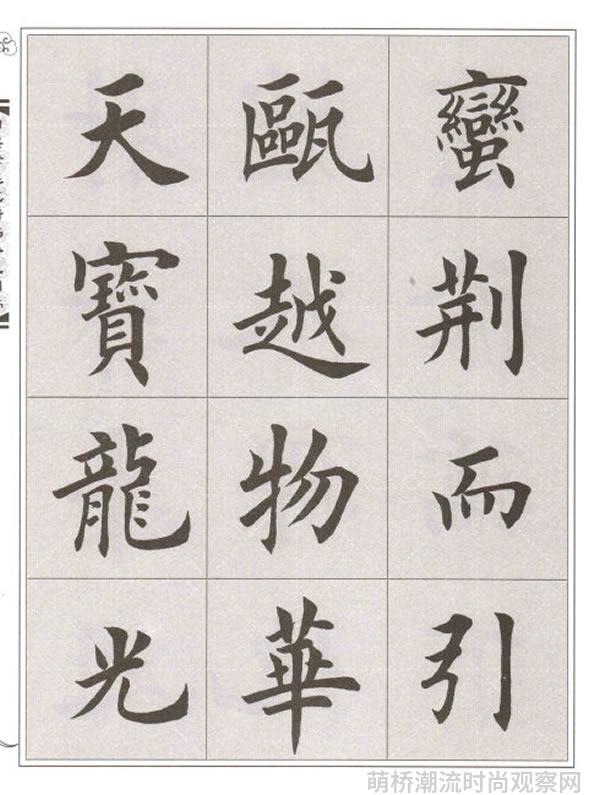 蠻荆而引
甌越物華
天寶龍光
萌桥潮流时尚观察网